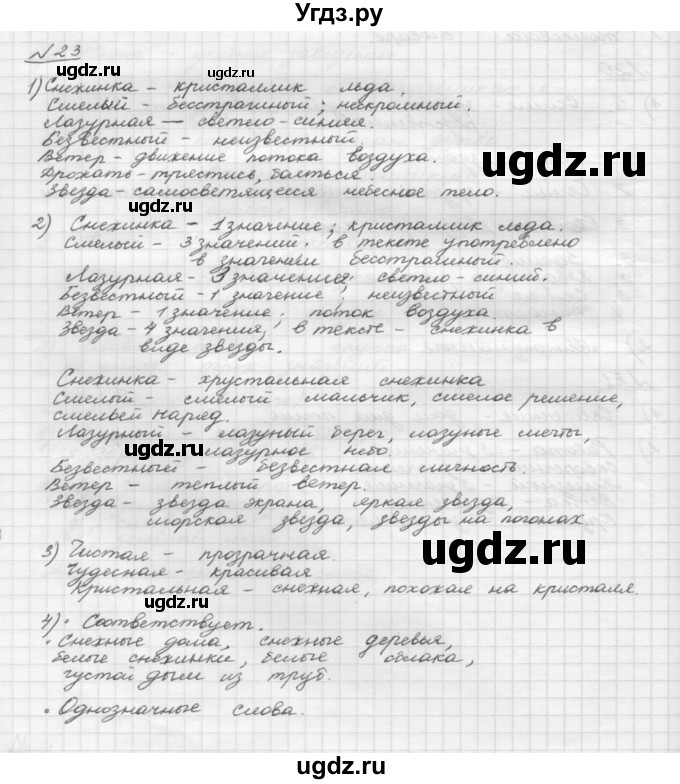 Угдз.ру
№23
1) Снежинка - кристаллик льда.
Смелый - бесстрашный; нескромный.
Лазурная — светло-синяя.
Безвестный - неизвестный.
Ветер - движение потока воздуха.
Дрожать - трястись, бояться.
Звезда - самосветящееся небесное тело.
2) Снежинка - 1 значение; кристаллик льда.
Смелый - 3 значений; в тексте употреблено
в значении бесстрашный.
Лазурная - 3 значение; светло-синий.
Безвестный - 1 значение; неизвестный
Ветер - 1 значение; поток воздуха.
Звезда - 4 значения; в тексте - снежинка в
виде звезды.
Снежинка - хрустальная снежинка
Смелый - смелый мальчик, смелое решение,
смелый наряд.
Лазурный - лазуный берег, лазуные мечты,
лазурное небо.
Безвестный - безвестная личность.
Ветер - теплый ветер.
Звезда - звезда экрана, яркая звезда,
морская звезда, звезды на погонах
3) Чистая - прозрачная.
Чудесная - красивая
Кристальная - снежная, похожая на кристалл.
4) • Соответствует.
• Снежные дома, снежные деревья,
белые снежинки, белые облака,
густой дым из труб.
• Однозначные слова.
ugdz.ru
ugdz.ru
ugdz.ru
ugdz.ru
ugdz.ru
ugdz.ru
ugdz.ru
ugdz.ru
ugdz.ru
ugdz.ru
ugdz.ru
ugdz.ru
ugdz.ru